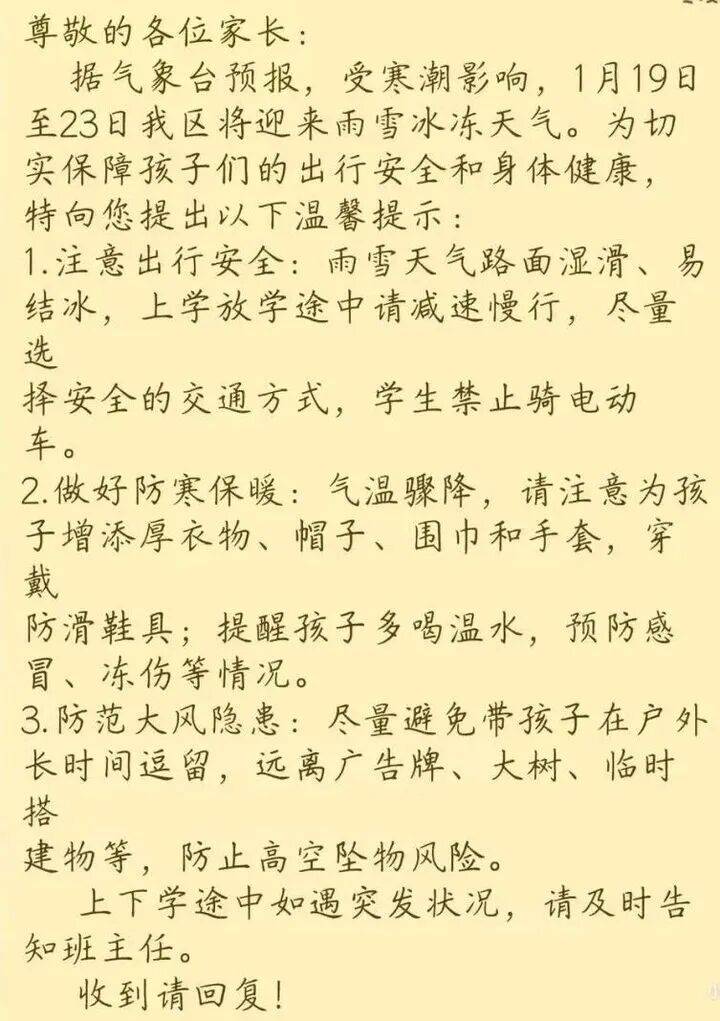 尊敬的各位家长：
据气象台预报，受寒潮影响，1月19日
至23日我区将迎来雨雪冰冻天气。为切
实保障孩子们的出行安全和身体健康，
特向您提出以下温馨提示：
1.注意出行安全：雨雪天气路面湿滑、易
结冰，上学放学途中请减速慢行，尽量
选
择安全的交通方式，学生禁止骑电动
车。
2.做好防寒保暖：气温骤降，请注意为孩
子增添厚衣物、帽子、围巾和手套，穿
戴
防滑鞋具；提醒孩子多喝温水，预防感
冒、冻伤等情况。
3.防范大风隐患：尽量避免带孩子在户外
长时间逗留，远离广告牌、大树、临时
搭
建物等，防止高空坠物风险。
上下学途中如遇突发状况，请及时告
知班主任。
收到请回复！